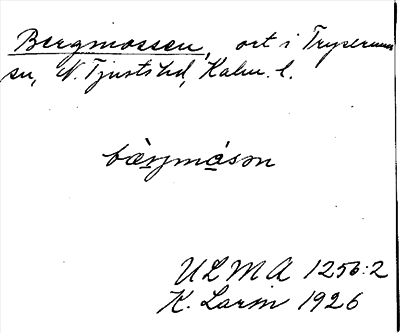 Bergmossen, ort i Tryserums
sn, N. Tjusts hd, Kalm. l.
bæ̀rjmå̀sən
ULMA 1256:2
K. Larin 1926